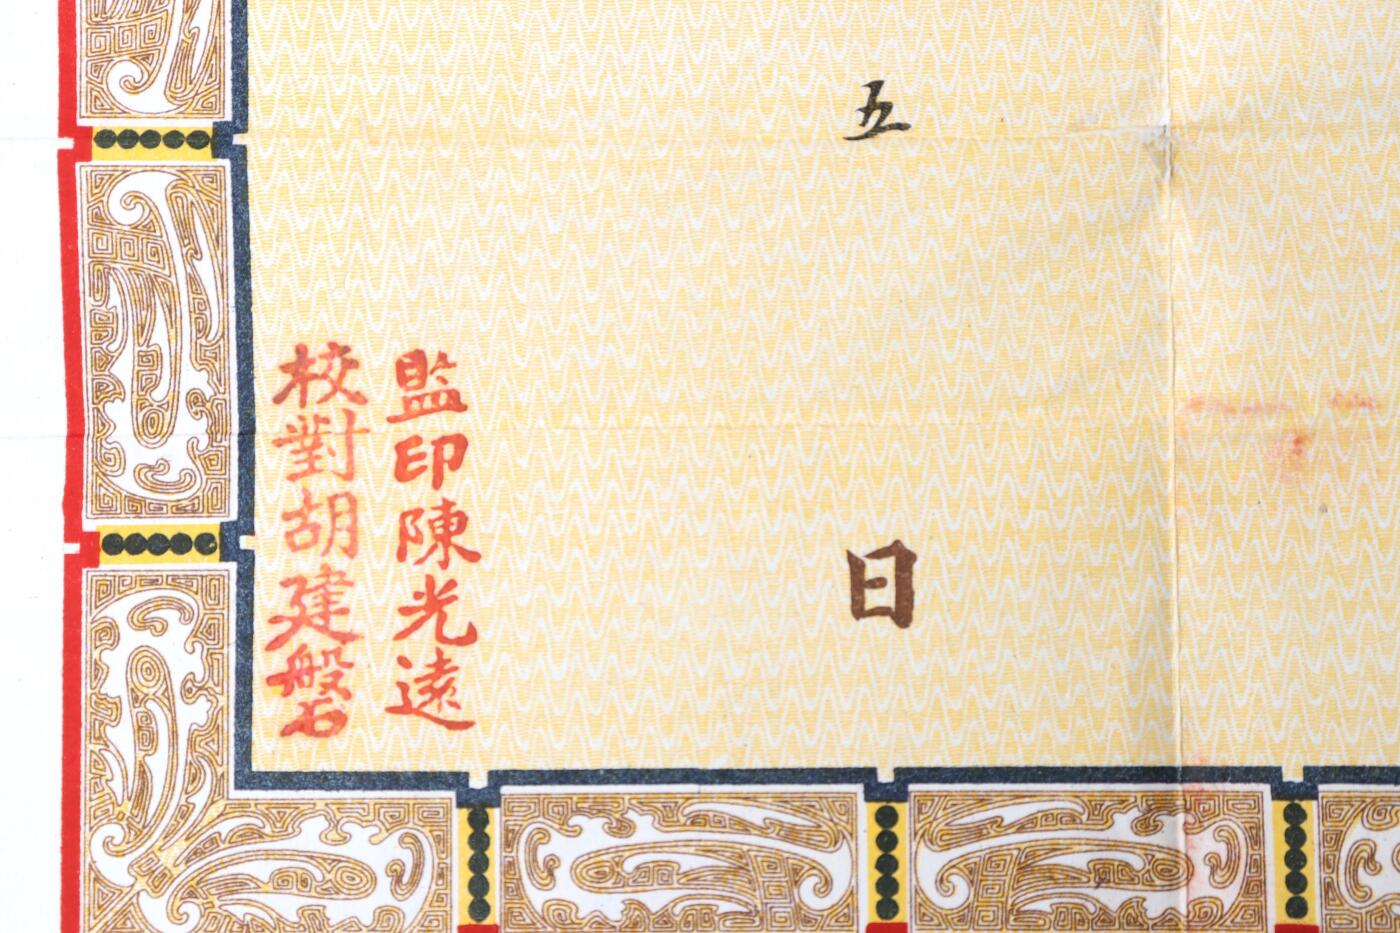 五日
監印陳光遠
校對胡建磐